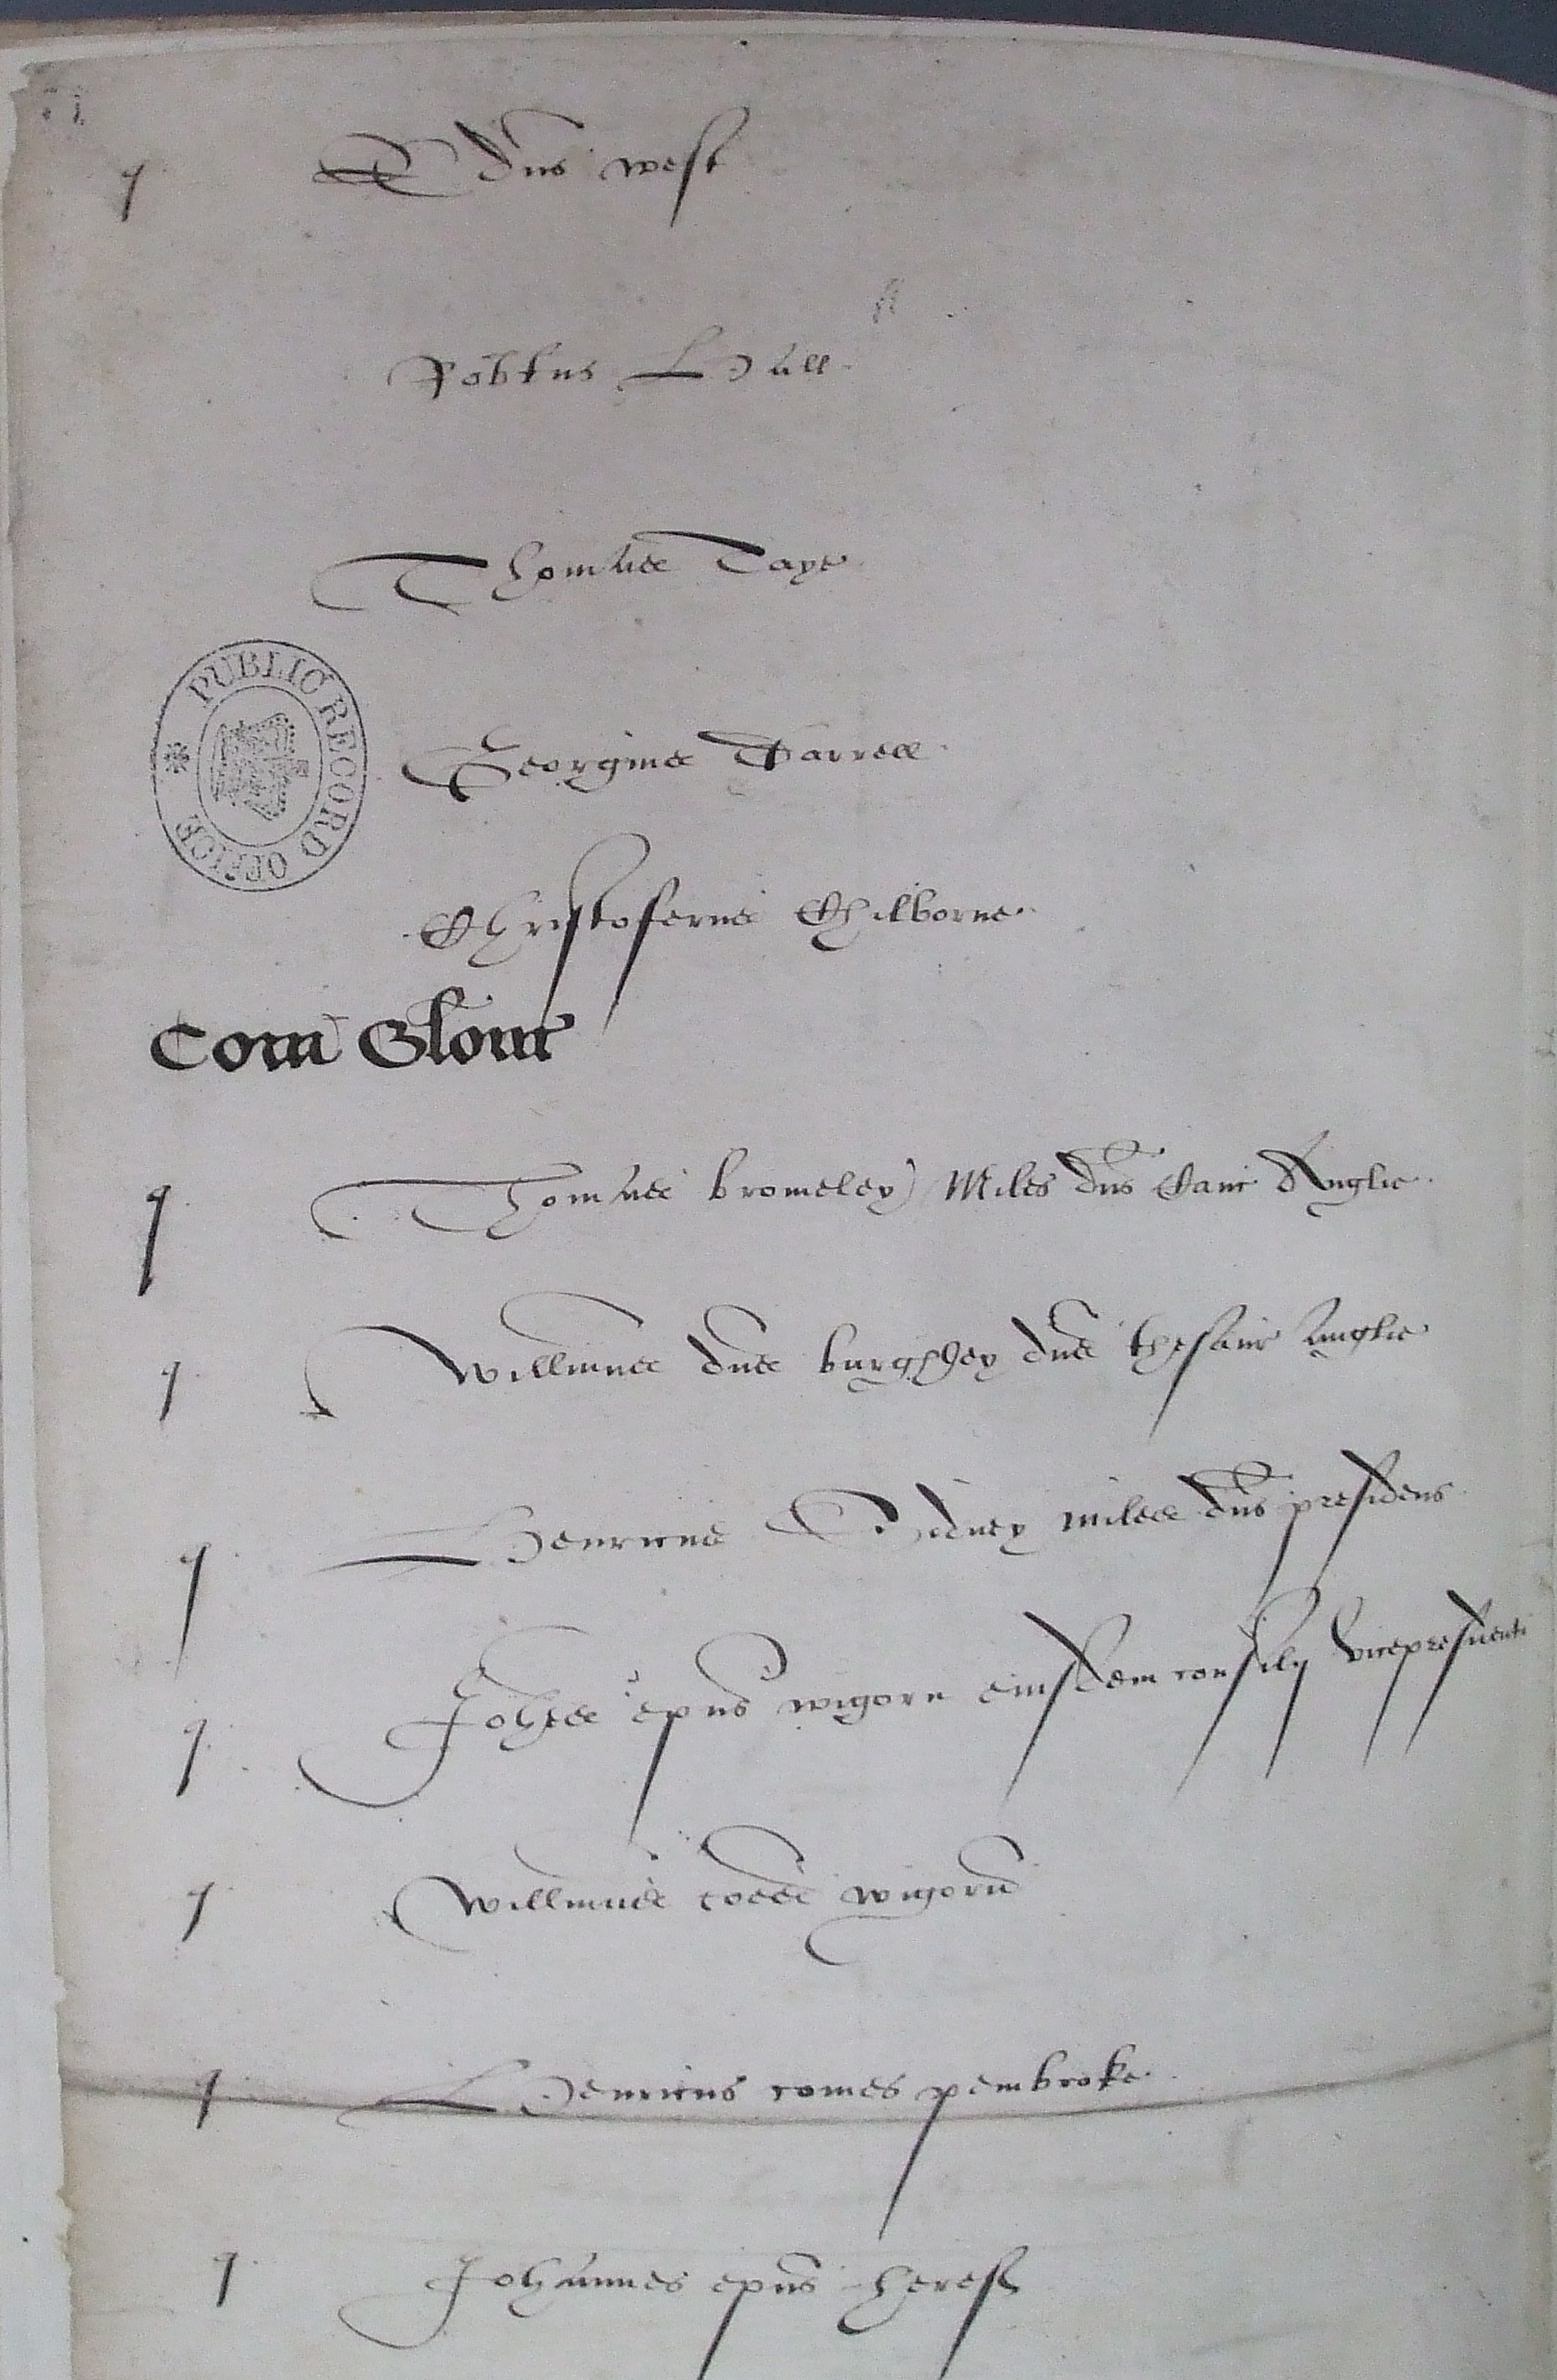 q T dns west
Robtus Hall
Thomas Taye
Georgius Farrell
PUBLIC RECORD OFFICE
Christoferus Chilborne
Com Glouc
q Thomas bromeley Miles dns Canc Anglie
q Willmus dns burghley dns thesaur Anglie
q Henricus Sidney miles dns presidens
q Johes epus wigorn eiusdem consilij vicepresidenti
q Willmus comes wigorn
q Henricus comes pembroke
q Johannes epus heref